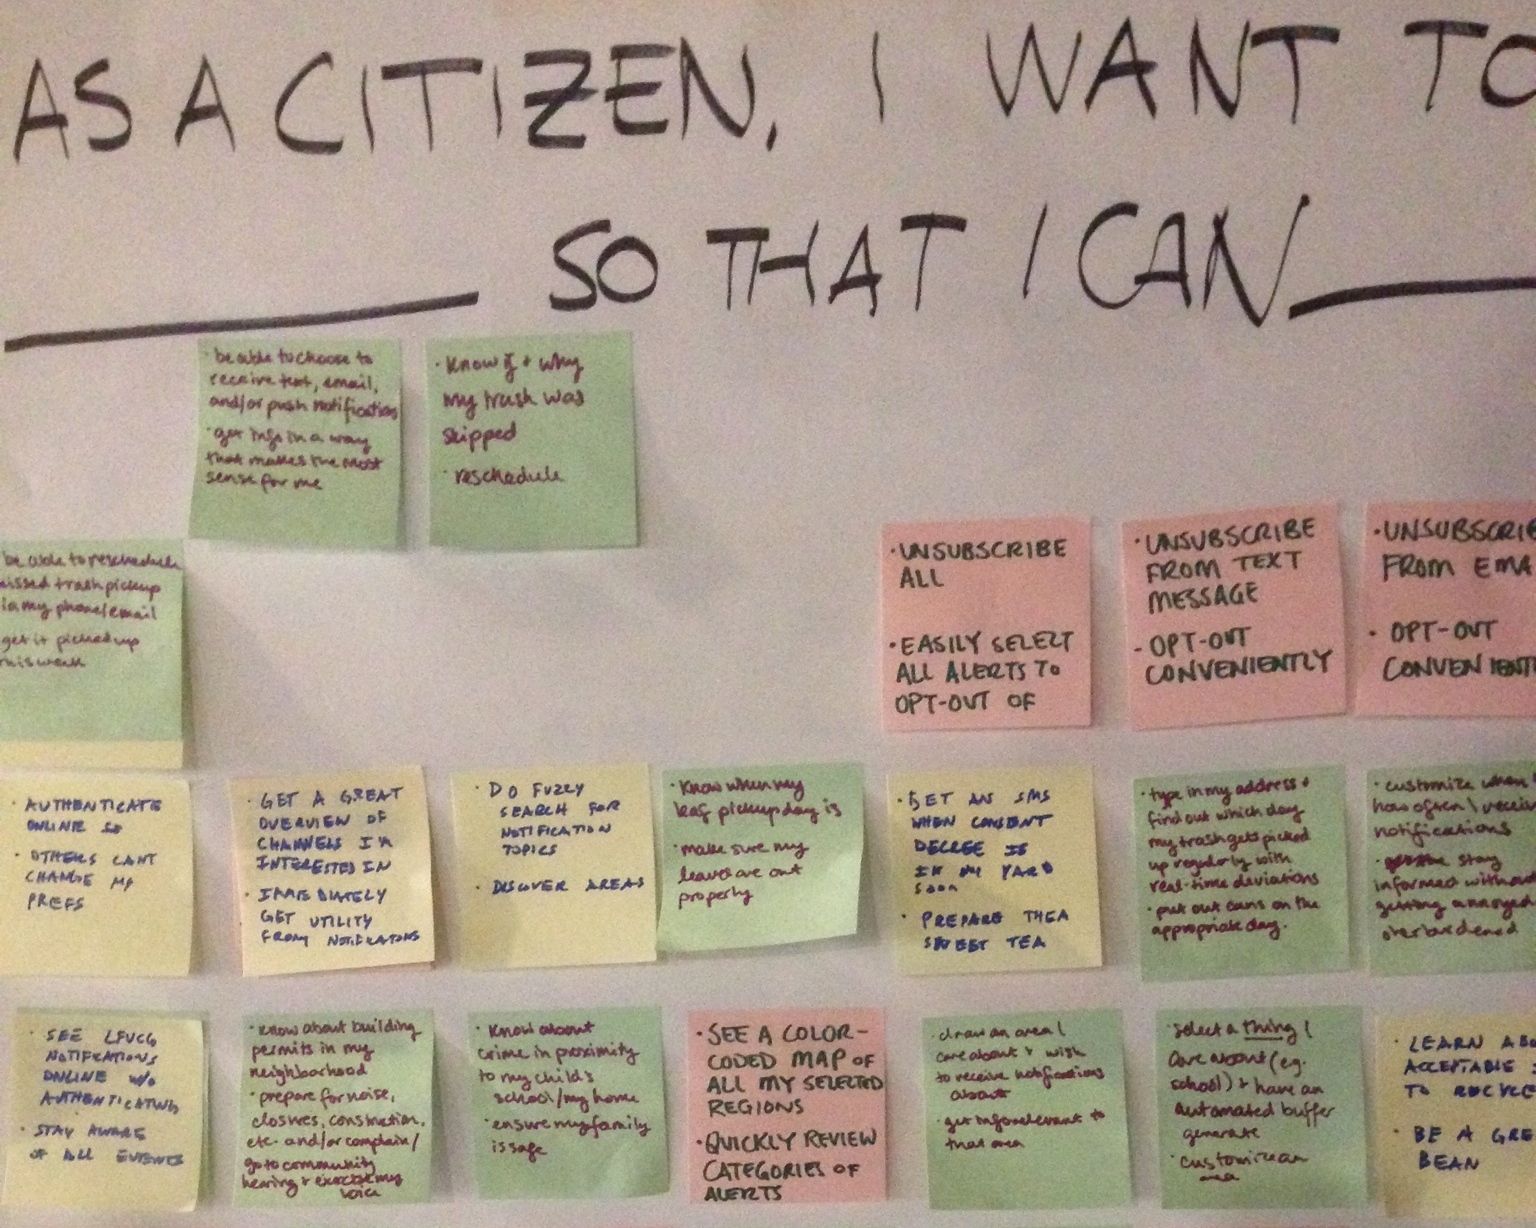 AS A CITIZEN, I WANT TO
SO THAT I CAN
· be able to choose to
receive text, email,
and/or push notification
· get info in a way
that makes the most
sense for me
· Know if + why
my trash was
skipped
· reschedule
be able to reschedule
missed trash pickup
my phone/email
get it picked up
this week
· UNSUBSCRIBE
ALL
· EASILY SELECT
ALL ALERTS TO
OPT-OUT OF
· UNSUBSCRIBE
FROM TEXT
MESSAGE
- OPT-OUT
CONVENIENTLY
· UNSUBSCRIBE
FROM EMA
· OPT-OUT
CONVENIENT
· AUTHENTICATE
ONLINE SO
· OTHERS CANT
CHANGE MY
PREFS
· GET A GREAT
OVERVIEW OF
CHANNELS I'M
INTERESTED IN
· IMMEDIATELY
GET UTILITY
FROM NOTIFICATONS
· DO FUZZY
SEARCH FOR
NOTIFICATION
TOPICS
· DISCOVER AREAS
· Know when my
leaf pickup day is
· make sure my
leaves are out
properly
· GET AN SMS
WHEN CONSENT
DECREE IS
IN MY YARD
SOON
· PREPARE THEM
SWEET TEA
· type in my address +
find out which day
my trash gets picked
up regularly with
real-time deviations
· put out cans on the
appropriate day.
· customize when
how often I receive
notifications
· stay
informed without
getting annoyed
overburdened
· SEE LFUCG
NOTIFICATIONS
ONLINE W/O
AUTHENTICATING
· STAY AWARE
OF ALL EVENTS
· Know about building
permits in my
neighborhood
· prepare for noise,
closures, construction,
etc. and/or complain/
go to community
hearing + exercise my
voice
· Know about
crime in proximity
to my child's
school/my home
· ensure my family
is safe
· SEE A COLOR-
CODED MAP OF
ALL MY SELECTED
REGIONS
· QUICKLY REVIEW
CATEGORIES OF
ALERTS
· draw an area I
care about + wish
to receive notifications
about
· get info relevant to
that area
· Select a thing I
care about (eg.
school) + have an
automated buffer
generate
· customize an
area
· LEARN ABO
ACCEPTABLE
TO RECYCLE
· BE A GRE
BEAN